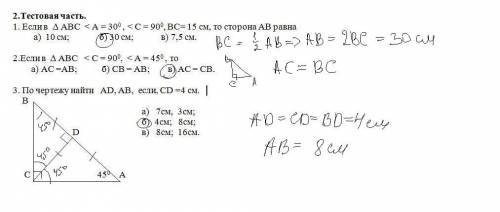 2.Тестовая часть.
1. Если в Δ ABC < A = 30⁰ , < C = 90⁰, BC= 15 см, то сторона AB равна
а) 10 см; б) 30 см; в) 7,5 см.
BC = 1/2 AB => AB = 2BC = 30 см
2.Если в Δ ABC < C = 90⁰, < A = 45⁰ , то
а) AC =AB; б) CB = AB; в) AC = CB.
C A
AC = BC
3. По чертежу найти AD, AB, если, CD =4 см. |
B
45⁰
D
а) 7см, 3см;
б) 4см; 8см;
в) 8см; 16см.
AD = CD = BD = 4 см
AB = 8 см
45⁰
C 45⁰ 45⁰ A